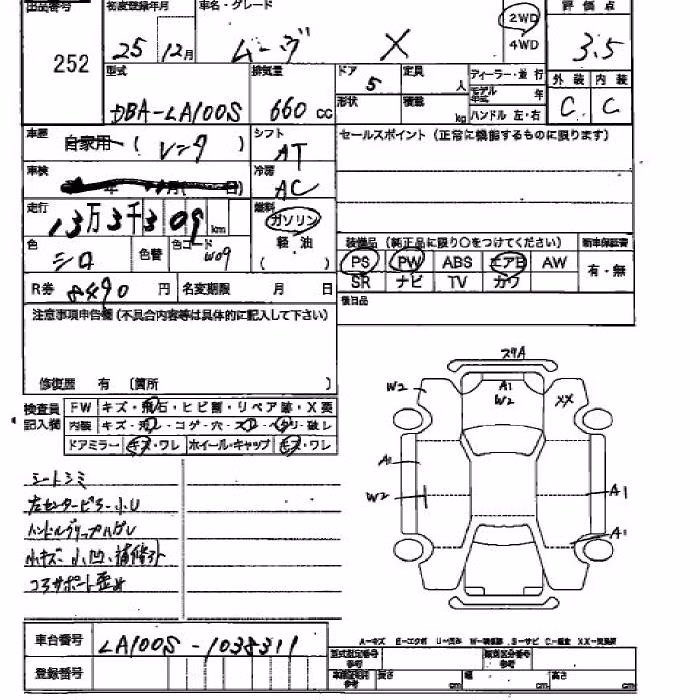 出品番号 初度登録年月 車名・グレード 2WD 評価点
252 25 12月 ムーヴ X 4WD 3.5
型式 排気量 ドア 5 定員 人 ディーラー・並行 外装 内装
DBA-LA100S 660 cc 形状 積載 kg モデル年式 年 C C
ハンドル 左・右
車歴 自家用 ( レンタ ) シフト AT セールスポイント (正常に機能するものに限ります)
車検 年 月( 日) 冷房 AC
走行 13万3千309 km 燃料 ガソリン
軽油
色 シロ 色替 色コード W09 ( ) 装備品 (純正品に限り○をつけてください) 新車保証書
PS PW ABS エアB AW 有・無
R券 8490 円 名変期限 月 日 SR ナビ TV カワ
注意事項申告欄 (不具合内容等は具体的に記入して下さい) 後日品
修復歴 有 (箇所 )
検査員記入欄 FW キズ・飛石・ヒビ割・リペア跡・X要
内装 キズ・汚レ・コゲ・穴・スレ・ヘタリ・破レ
ドアミラー キズ・ワレ ホイール・キャップ キズ・ワレ
スリA
W2 A1 W2 XX
A1
W2 A1
A1
シートシミ
左センターピラー小U
ハンドルグリップハゲし
小キズ、小凹、補修跡
コアサポート歪め
A-キズ E-エクボ U-凹み W-補修跡 S-サビ C-腐食 XX-交換済
車台番号 LA100S-1038311
登録番号
型式指定番号 参考 類別区分番号 参考
車検証明用 参考 長さ cm 幅 cm 高さ cm